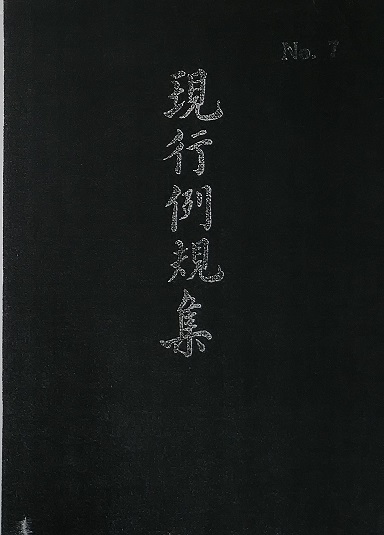 No. 7
現行例規集